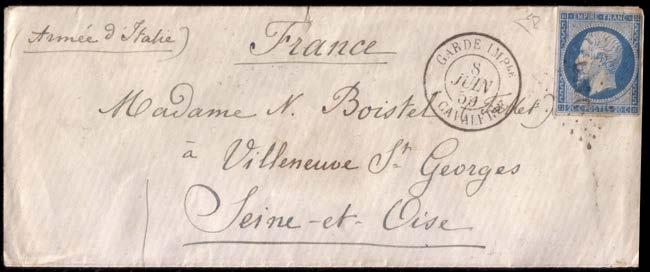 Armée d'Italie)
France
GARDE IMPLE
8
JUIN
59
CAVALERIE
EMPIRE FRANC
20 C. POSTES 20 C.
Madame N. Boistel
à Villeneuve St Georges
Seine-et-Oise